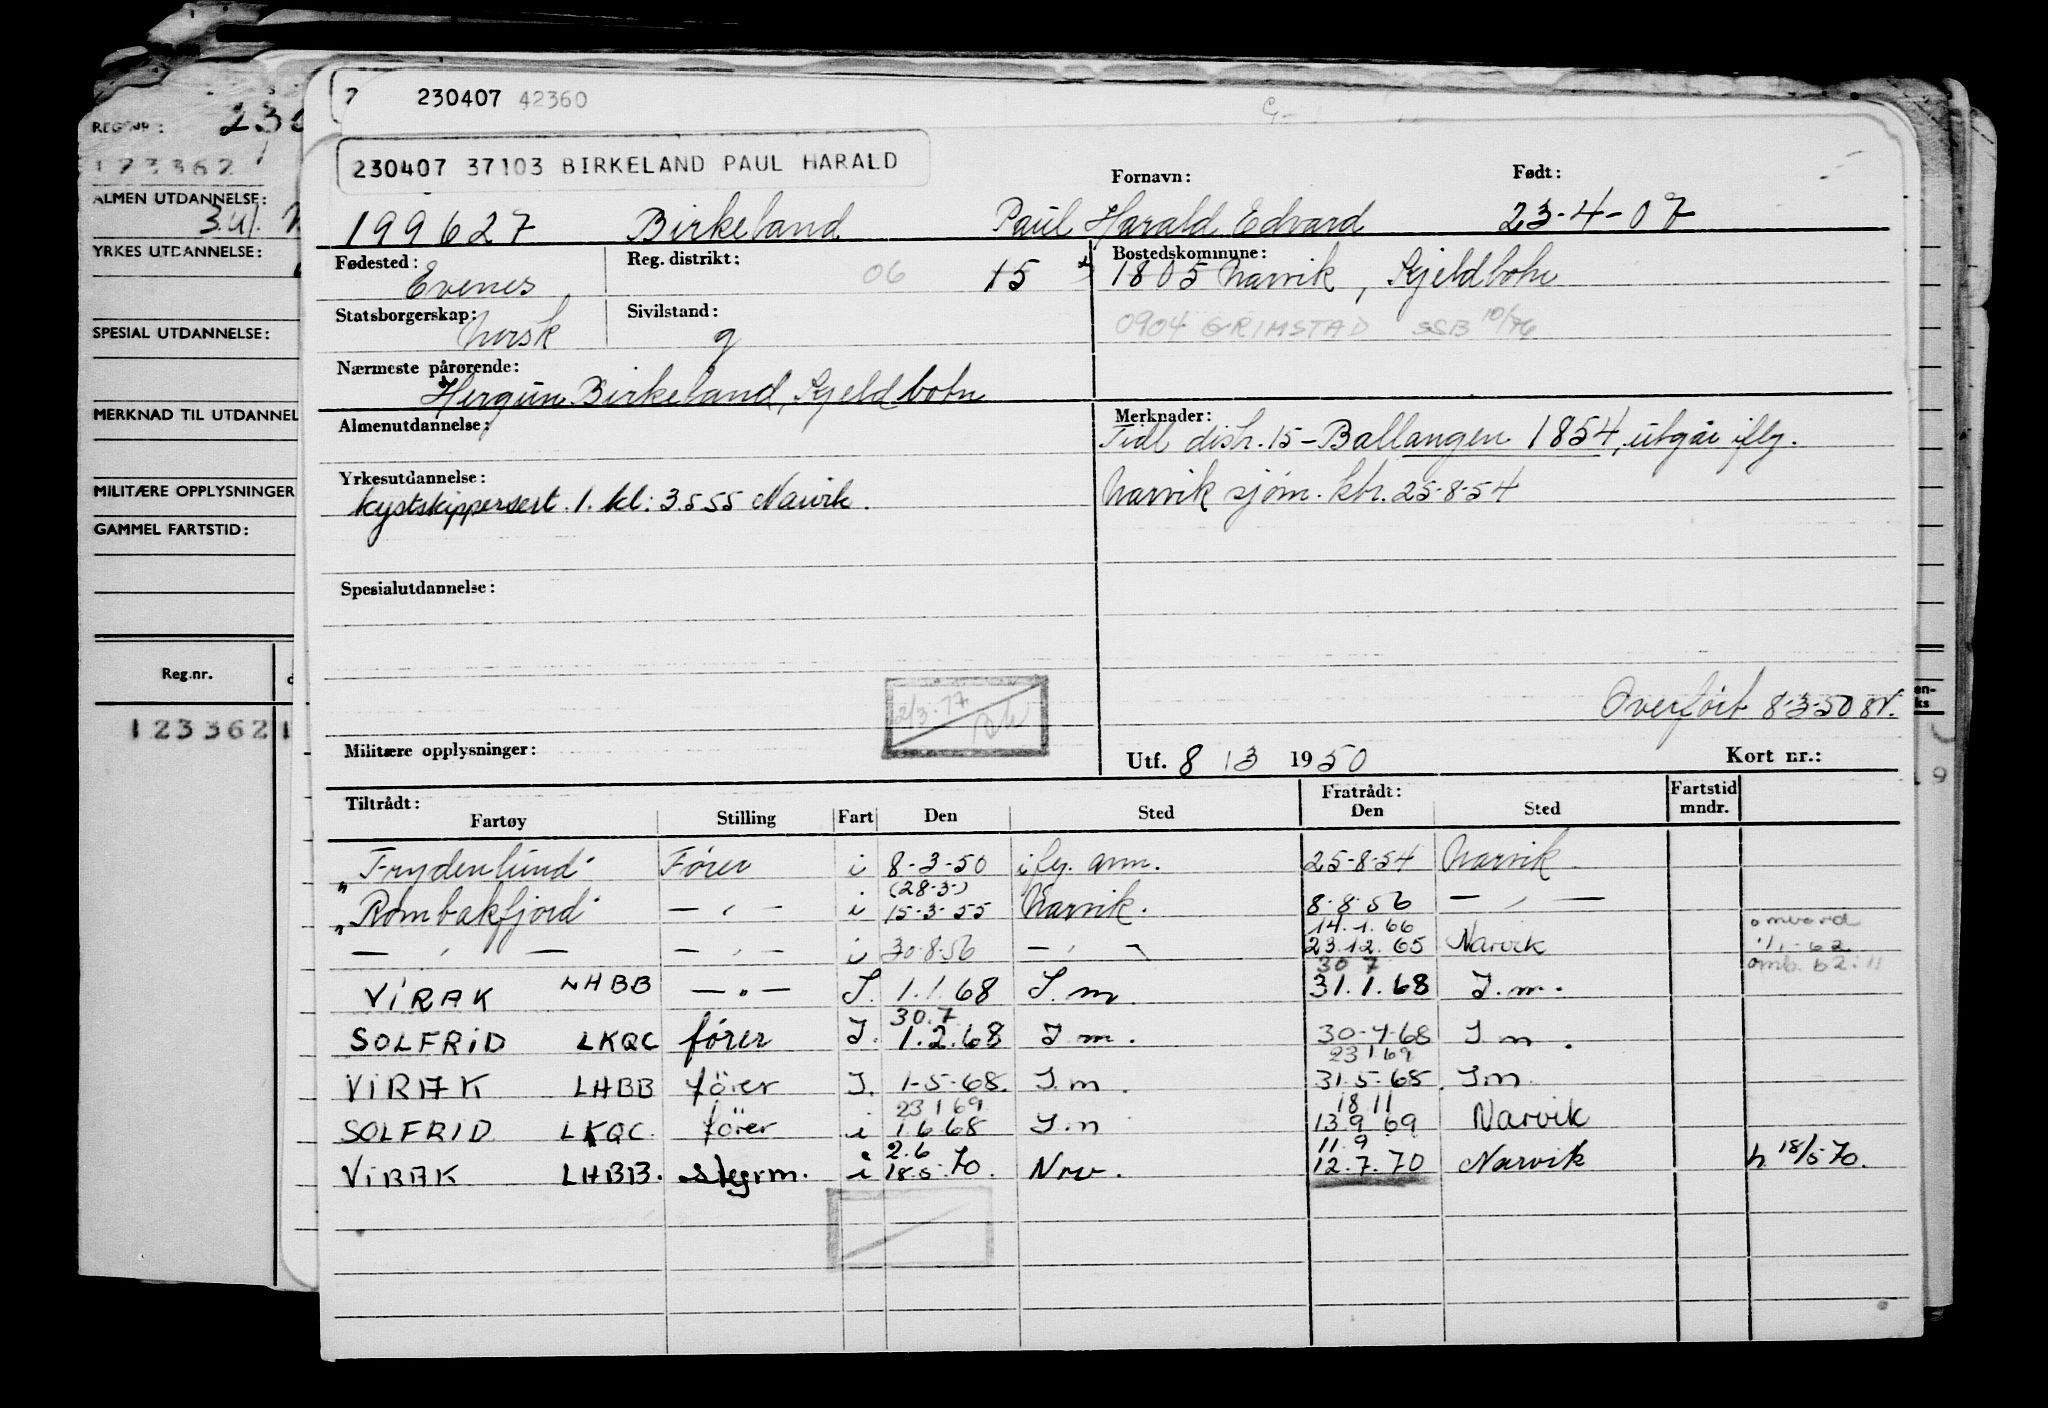 7 230407 42360
230407 37103 BIRKELAND PAUL HARALD
Fornavn: Født:
199627 Birkeland Paul Harald Edvard 23-4-07
Fødested: Evenes Reg. distrikt: 06 15 Bostedskommune: 1805 Narvik, Kjeldbotn
Statsborgerskap: norsk Sivilstand: g 0904 GRIMSTAD SSB 10/76
Nærmeste pårørende:
Hergun Birkeland, Kjeldbotn
Almenutdannelse: Merknader:
Tidl distr. 15 - Ballangen 1854, utgår iflg.
Yrkesutdannelse: Narvik sjøm. ktr. 25-8-54
kystskippersert. 1. kl: 3555 Narvik.
Spesialutdannelse:
2/3.77
Overført 8-3-50
Militære opplysninger: Utf. 8 / 3 1950 Kort nr.:
Tiltrådt: Fratrådt: Fartstid
Fartøy Stilling Fart Den Sted Den Sted mndr.
"Frydenlund" Fører i 8-3-50 iflg. ann. 25-8-54 Narvik
(28-3-)
"Rombakfjord" — " — i 15-3-55 Narvik. 8-8-56 — " —
14.1.66 ombord
— " — — " — i 30-8-56 — " — 23.12.65 Narvik 1/1-62
30 7 omb. 62:11
VIRAK LHBB — " — I. 1.1.68 I.m. 31.1.68 I.m.
30.7
SOLFRID LKQC fører I. 1.2.68 I.m. 30-4-68 I.m.
23 1 69
VIRAK LHBB fører I. 1-5-68. I.m. 31.5-68. I.m.
23 1 69 18 11
SOLFRID LKQC. fører i 1 6 68 I.m 13 9 69 Narvik
2.6 11.9
VIRAK LHBB. styrm. i 18.5.70. Nrv. 12.7.70 Narvik h 18/5 70.
REG.NR.: 230
123362
ALMEN UTDANNELSE:
YRKES UTDANNELSE:
SPESIAL UTDANNELSE:
MERKNAD TIL UTDANNEL
MILITÆRE OPPLYSNINGER
GAMMEL FARTSTID:
Reg.nr.
123362 1
en-
ks
9